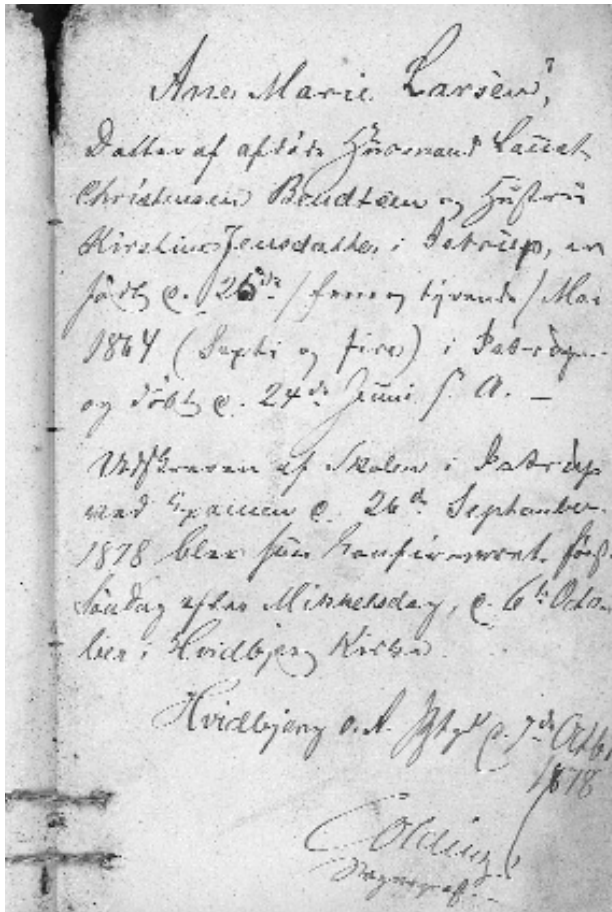 Ane Marie Larsen,
Datter af afdøde Huusmand Laust
Christensen Bendtsen og Hustru
Kirstine Jensdatter i Istrup, er
født d. 25de / fem og tyvende / Mai
1864 (Sexti og fire) i Istrup
og døbt d. 24de Juni s. A. –
Udskreven af Skolen i Istrup
ved Examen d. 26de September
1878 blev hun konfirmeret først
Søndag efter Mikkelsdag, d. 6te Octo
ber i Hvidbjerg Kirke.
Hvidbjerg d. 7de Octbr
1878
Colding
Sognepræst